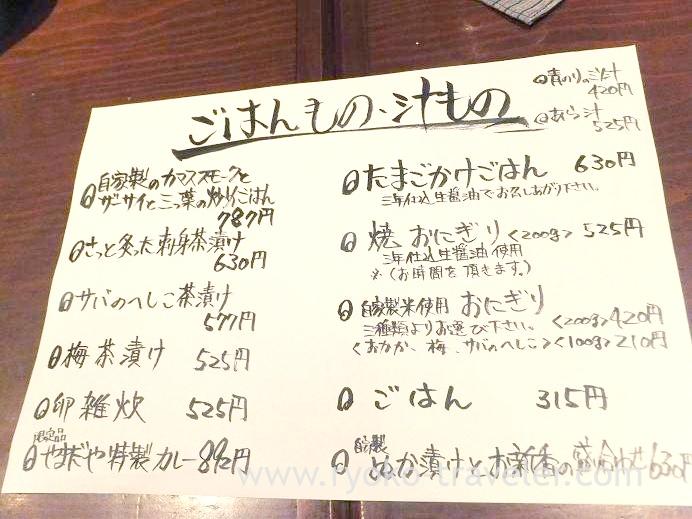 ごはんもの、汁もの
自家製のカマススモークと
ザーサイと三つ葉の炒りごはん
787円
さっと炙った刺身茶漬け
630円
サバのへしこ茶漬け
577円
梅茶漬け 525円
卵雑炊 525円
限定品
やまだや特製カレー 892円
青のりのミソ汁
420円
あら汁
525円
たまごかけごはん 630円
三年仕込生醤油でお召しあがり下さい。
焼おにぎり <200g> 525円
三年仕込生醤油使用
※(お時間を頂きます。)
自家製米使用 おにぎり
三種類よりお選び下さい。 <200g> 420円
<おかか、梅、サバのへしこ> <100g> 210円
ごはん 315円
自家製
ぬか漬けとお新香の盛り合わせ 630円
www.ryoko-traveler.com